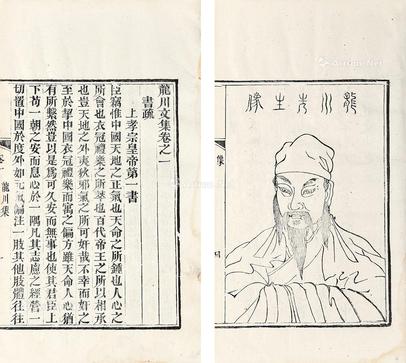 龍川先生像
像
龍川文集卷之一
書疏
上孝宗皇帝第一書
臣竊惟中國天地之正氣也天命之所鍾也人心之
所會也衣冠禮樂之所萃也百代帝王之所以相承
也豈天地之外夷狄邪氣之所可奸哉不幸而奸之
至於挈中國衣冠禮樂而寓之偏方雖天命人心猶
有所繫然豈以是爲可久安而無事也使其君臣上
下苟一朝之安而息心於一隅凡其志慮之經營一
切置中國於度外如元氣偏注一肢其他肢體往往
龍川集